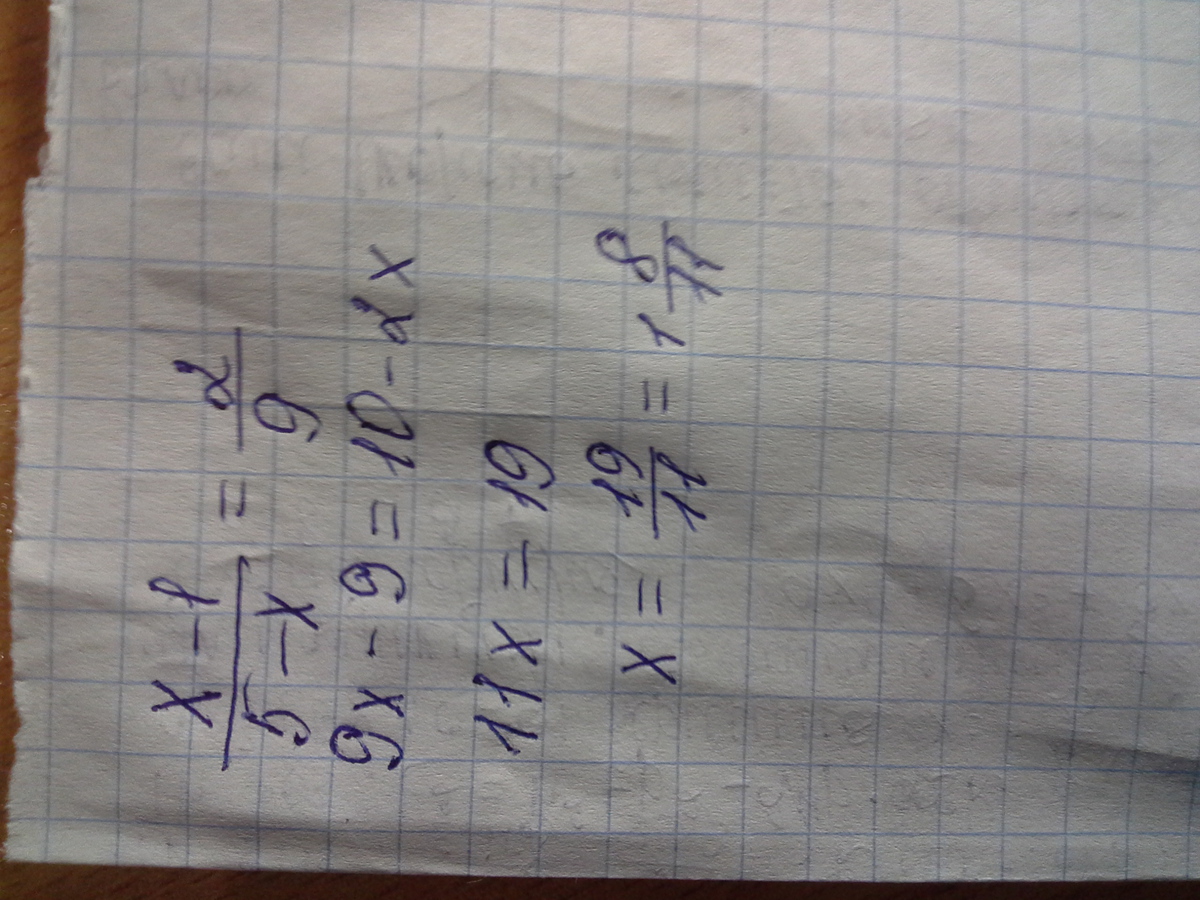 x-1/5-x = 2/9
9x-9=10-2x
11x=19
x=19/11=1 8/11